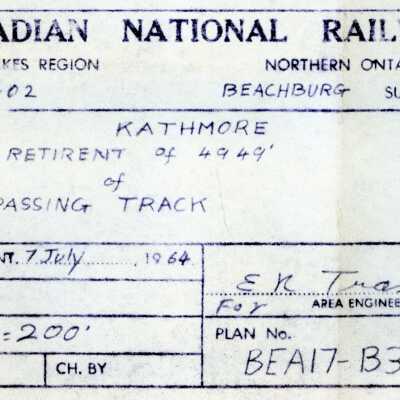 ADIAN NATIONAL RAIL
KES REGION NORTHERN ONTA
-02 BEACHBURG SU
KATHMORE
RETIRENT of 4949'
of
PASSING TRACK
NT. 7 July 1964
E R Tra
For AREA ENGINEE
=200' PLAN No.
CH. BY BEA17-B3